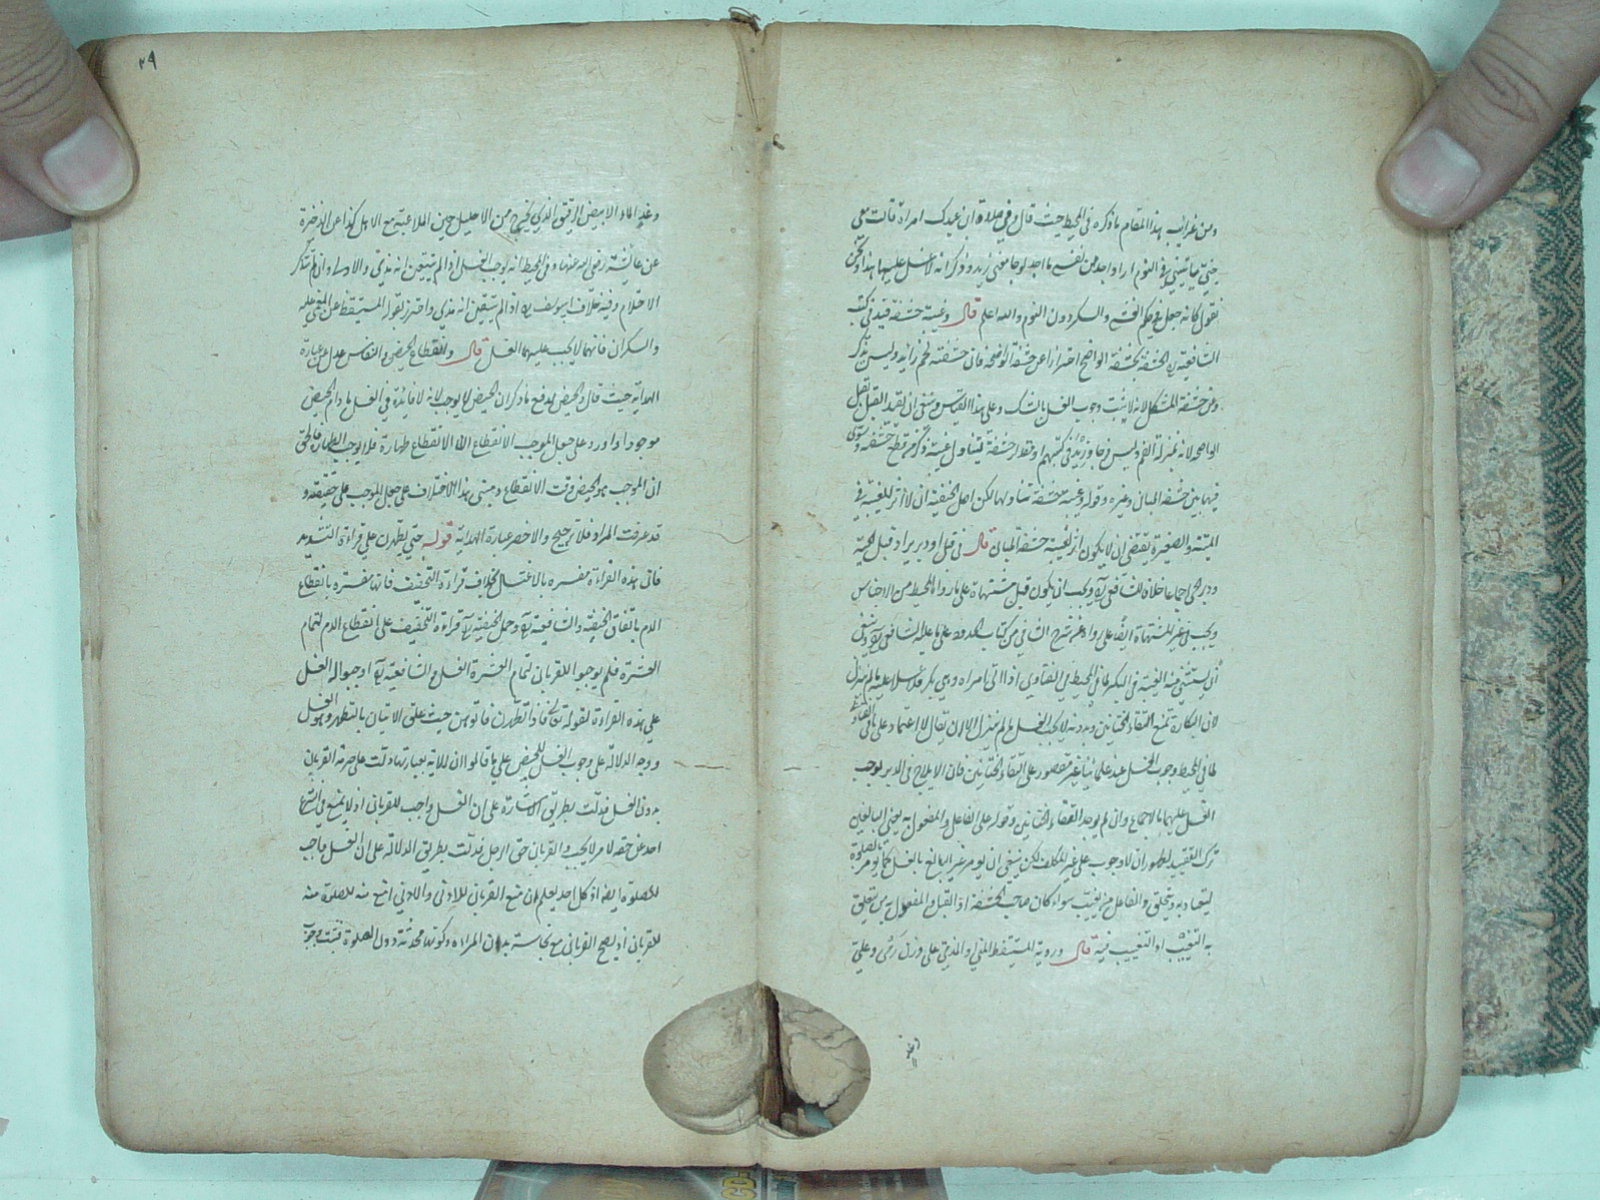 ومن غرائب هذا المقام ما ذكره فى المحيط حيث قال وفي صلاة ابن عبدك امراة قالت معى
جنى يأتينى فى النوم مرارا واجد من نفسى ما اجد لو جامعنى زوجى ذكر انه لا غسل عليها هذا ونحن
نقول كانه جعل فى حكم والسكر دون النوم والله اعلم قال وغيبة حشفة قيد فى كتب
الشافعية الحشفة بحشفة الواضح احترازا عن حشفة فان حشفته لحم زائد وليس بذكر
وعن حشفة المشكل لانه لا يثبت وجوب الغسل بالشك وعلى هذا القياس ينبغى ان يقيد القبل بقبل
الواضح لانه بمنزلة الفم وليس فرجا وقوله وغيبة حشفة يتناول غيبة ذكر قطع حشفته
فيها بين حشفة المبان وغيره وقوله وغيبة حشفة تناولها لكن اصل الحنفية ان لا اثر للغيبة فى
الميتة والصغيرة يقتضى ان لا يكون اثر لغيبة حشفة المبان قال فى قبل او دبر يراد قبل الحية
ودبر الحى اجماعا خلافا للشافعى ويجب ان يكون قبل مشتهاة على ما روى المحيط من الاجناس
ويجب فى غير المشتهاة ايضا على رواية شرح الشافى من كتاب الحدود على ما عليه الشافعى وينبغى
أن يستثنى منه الغيبة فى البكر لما فى المحيط فى الفتاوى اذا اتى امراة وهى بكر فلا غسل عليه ما لم ينزل
لان البكارة تمنع التقاء الختانين وبدونه لا يجب الغسل ما لم ينزل الا ان يقال لا اعتماد على
لما فى المحيط وجوب الغسل عند علمائنا غير مقصور على التقاء الختانين فان الايلاج فى الدبر يوجب
الغسل عليهما بالاجماع وان لم يوجد التقاء الختانين وقوله على الفاعل والمفعول به يعنى البالغين
ترك التقييد لظهور ان لا وجوب على غير المكلف لكن ينبغى ان يؤمر غير البالغ بالغسل كما يؤمر بالصلوة
ليعتاد به ويتخلق والفاعل من يغيب سواء كان صاحب الحشفة او القبل والمفعول به من يتعلق
به التغيب او التغييب فيه قال ورؤية المستيقظ المنى او المذى على وزن رمى وعلى
وغد
٢٩
وغد الماء الابيض الرقيق الذى يخرج من الاحليل حين الملاعبة مع الاهل كذا عن الذخيرة
عن عائشة رضى الله عنها وفى المحيط انه يوجب الغسل اذا لم يتيقن انه مذى والا لا وان لم يتذكر
الاحتلام وفيه خلاف ابى يوسف اذا لم يتيقن انه مذى واحترز بقوله المستيقظ عن المغمى عليه
والسكران فانهما لا يجب عليهما الغسل قال وانقطاع الحيض والنفاس عدل عن عبارة
الهداية حيث قال والحيض ليدفع ما ذكر ان الحيض لا يوجب لانه لا فائدة فى الغسل ما دام الحيض
موجودا واورد على جعل الموجب الانقطاع ان الانقطاع طهارة فلا يوجب الطهارة فالحق
ان الموجب هو الحيض وقت الانقطاع ومبنى هذا الاختلاف على جعل الموجب على حقيقته و
قد عرفت المراد فلا ترجيح والاخصر عبارة الهداية قوله حتى يطهرن على قراءة التشديد
فان هذه القراءة مفسرة بالاغتسال بخلاف قراءة التخفيف فانها مفسرة بانقطاع
الدم باتفاق الحنفية والشافعية وحمل الحنفية قراءة التخفيف على انقطاع الدم لتمام
العشرة فلم يوجبوا للقربان لتمام العشرة الغسل والشافعية اوجبوا له الغسل
على هذه القراءة لقوله تعالى فاذا تطهرن فاتوهن حيث علق الاتيان بالتطهر وهو الغسل
ووجه الدلالة على وجوب الغسل للحيض على ما قالوا ان الاية بعبارتها دلت على حرمة القربان
بدون الغسل فدلت بطريق الاشارة على ان الغسل واجب للقربان اذ لا يمنع فى الشرع
احد عن حقه لامر لا يجب والقربان حق الرجل فدلت بطريق الدلالة على ان الغسل واجب
للصلوة ايضا اذ كل احد يعلم ان منع القربان للاذى والاذى امنع منه للصلوة منه
للقربان اذ يصح القربان مع نجاسة بدن المراة وكونها محدثة دون الصلوة فثبت وجوب